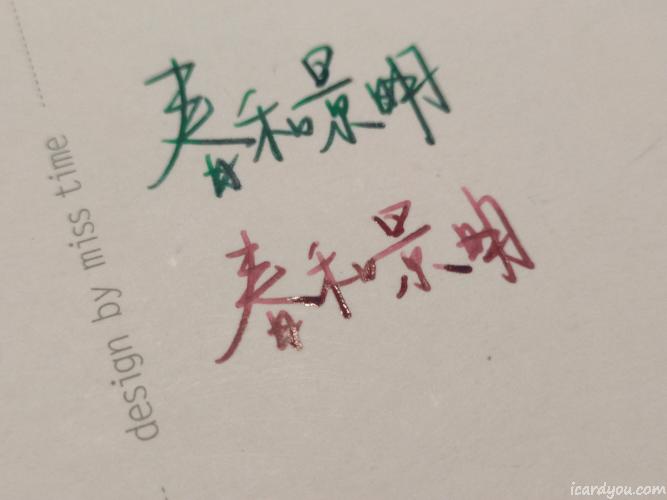 春和景明
春和景明
design by miss time
icardyou.com